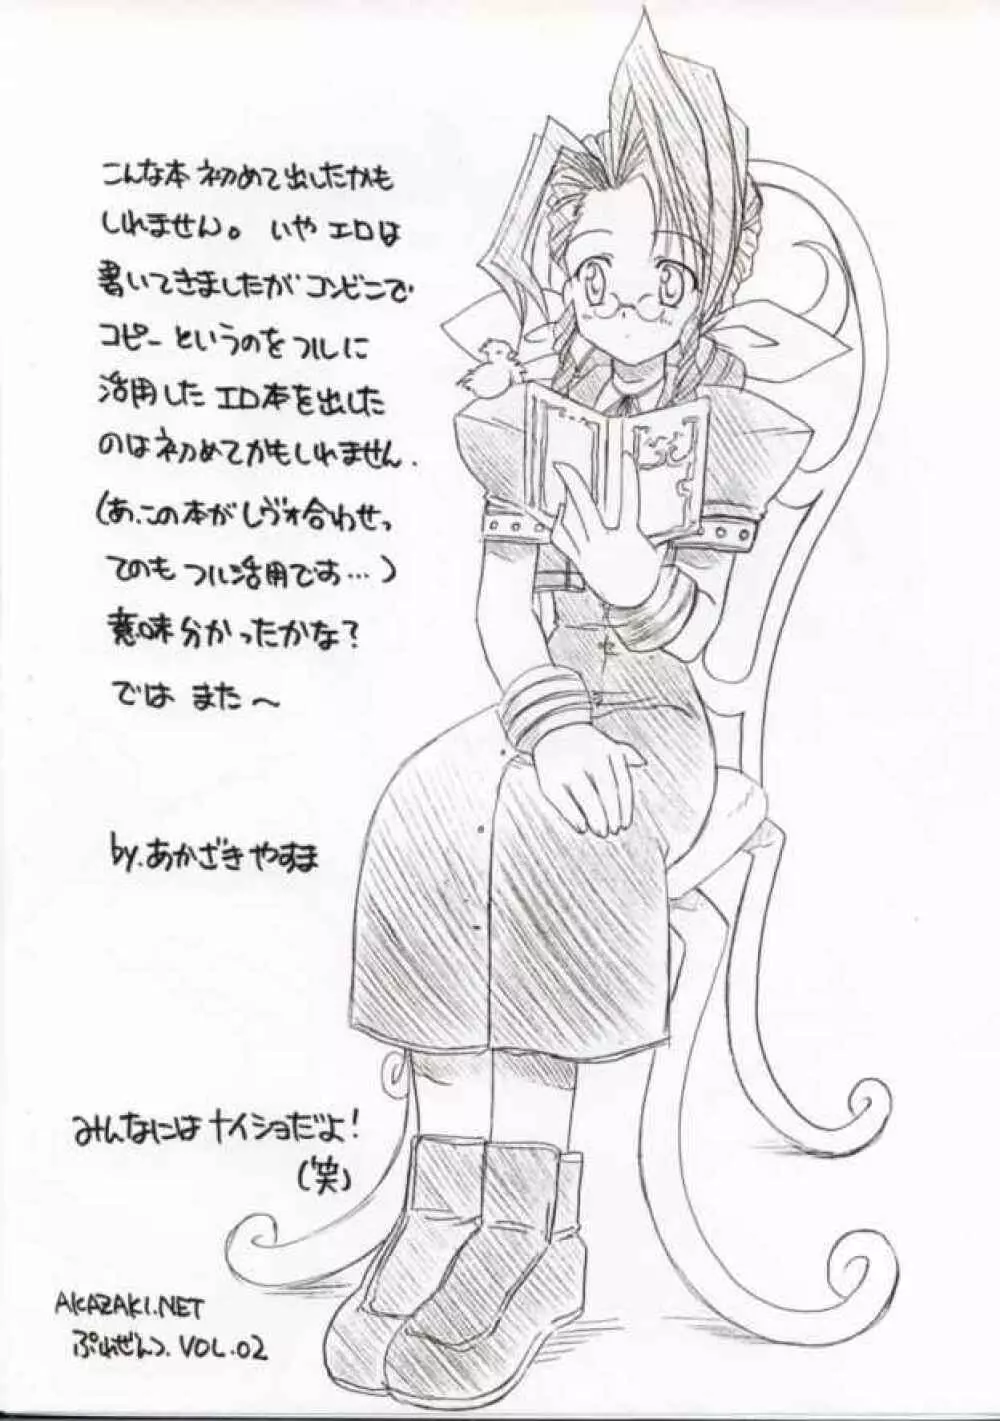 こんな本 初めて出したかも
しれません。いや エロは
書いてきましたが コンビニで
コピーというのを フルに
活用した エロ本を出した
のは初めてかもしれません.
(あ、この本がレヴォ合わせっ
てのも フル活用です…)
意味分かったかな?
では また～
by.あかざきやすま
みんなにはナイショだよ!
(笑)
AKAZAKI.NET
ぷれぜんつ.VOL.02